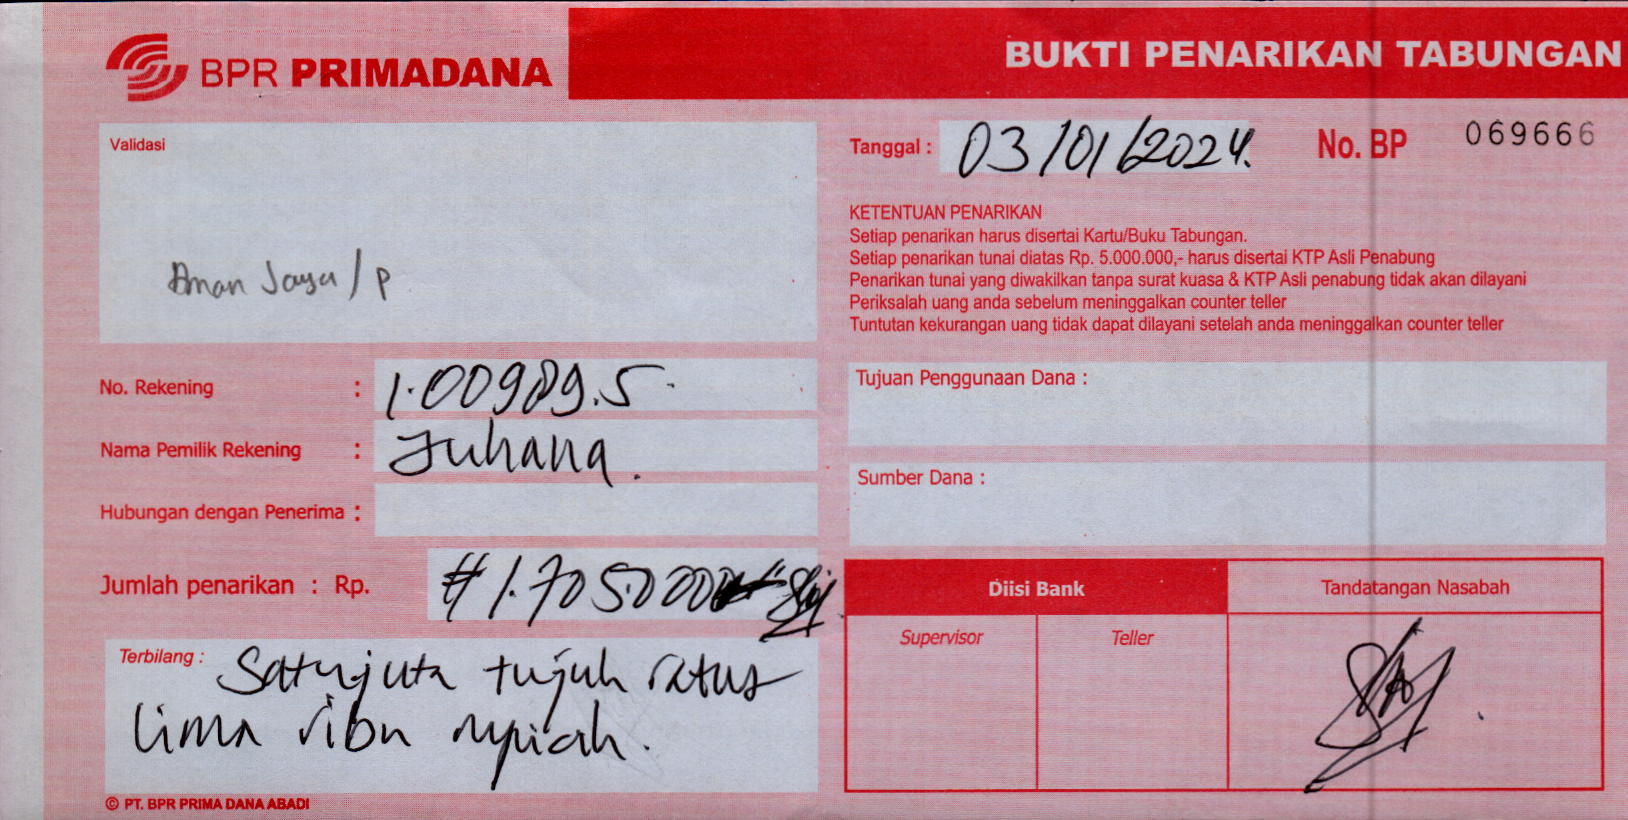 BPR PRIMADANA
BUKTI PENARIKAN TABUNGAN
Validasi
Aman Jaya / P
Tanggal : 03/01/2024.
No. BP 069666
KETENTUAN PENARIKAN
Setiap penarikan harus disertai Kartu/Buku Tabungan.
Setiap penarikan tunai diatas Rp. 5.000.000,- harus disertai KTP Asli Penabung
Penarikan tunai yang diwakilkan tanpa surat kuasa & KTP Asli penabung tidak akan dilayani
Periksalah uang anda sebelum meninggalkan counter teller
Tuntutan kekurangan uang tidak dapat dilayani setelah anda meninggalkan counter teller
No. Rekening : 1.00989.5
Nama Pemilik Rekening : Juhana.
Hubungan dengan Penerima :
Jumlah penarikan : Rp. # 1.705.000
Terbilang : Satujuta tujuh ratus
lima ribu rupiah.
Tujuan Penggunaan Dana :
Sumber Dana :
Diisi Bank
Tandatangan Nasabah
Supervisor
Teller
© PT. BPR PRIMA DANA ABADI